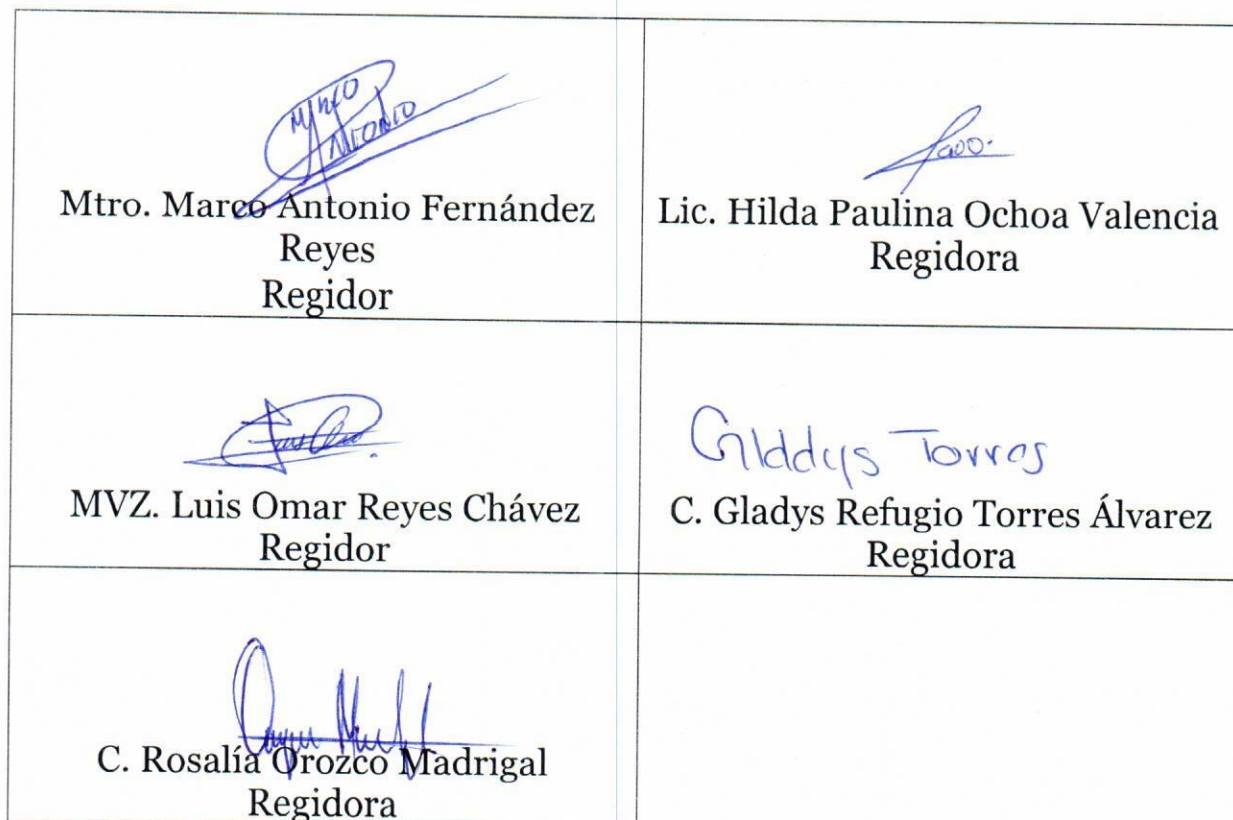 MARCO
ANTONIO
Mtro. Marco Antonio Fernández
Reyes
Regidor
Lic. Hilda Paulina Ochoa Valencia
Regidora
MVZ. Luis Omar Reyes Chávez
Regidor
Glddys Torres
C. Gladys Refugio Torres Álvarez
Regidora
C. Rosalía Orozco Madrigal
Regidora